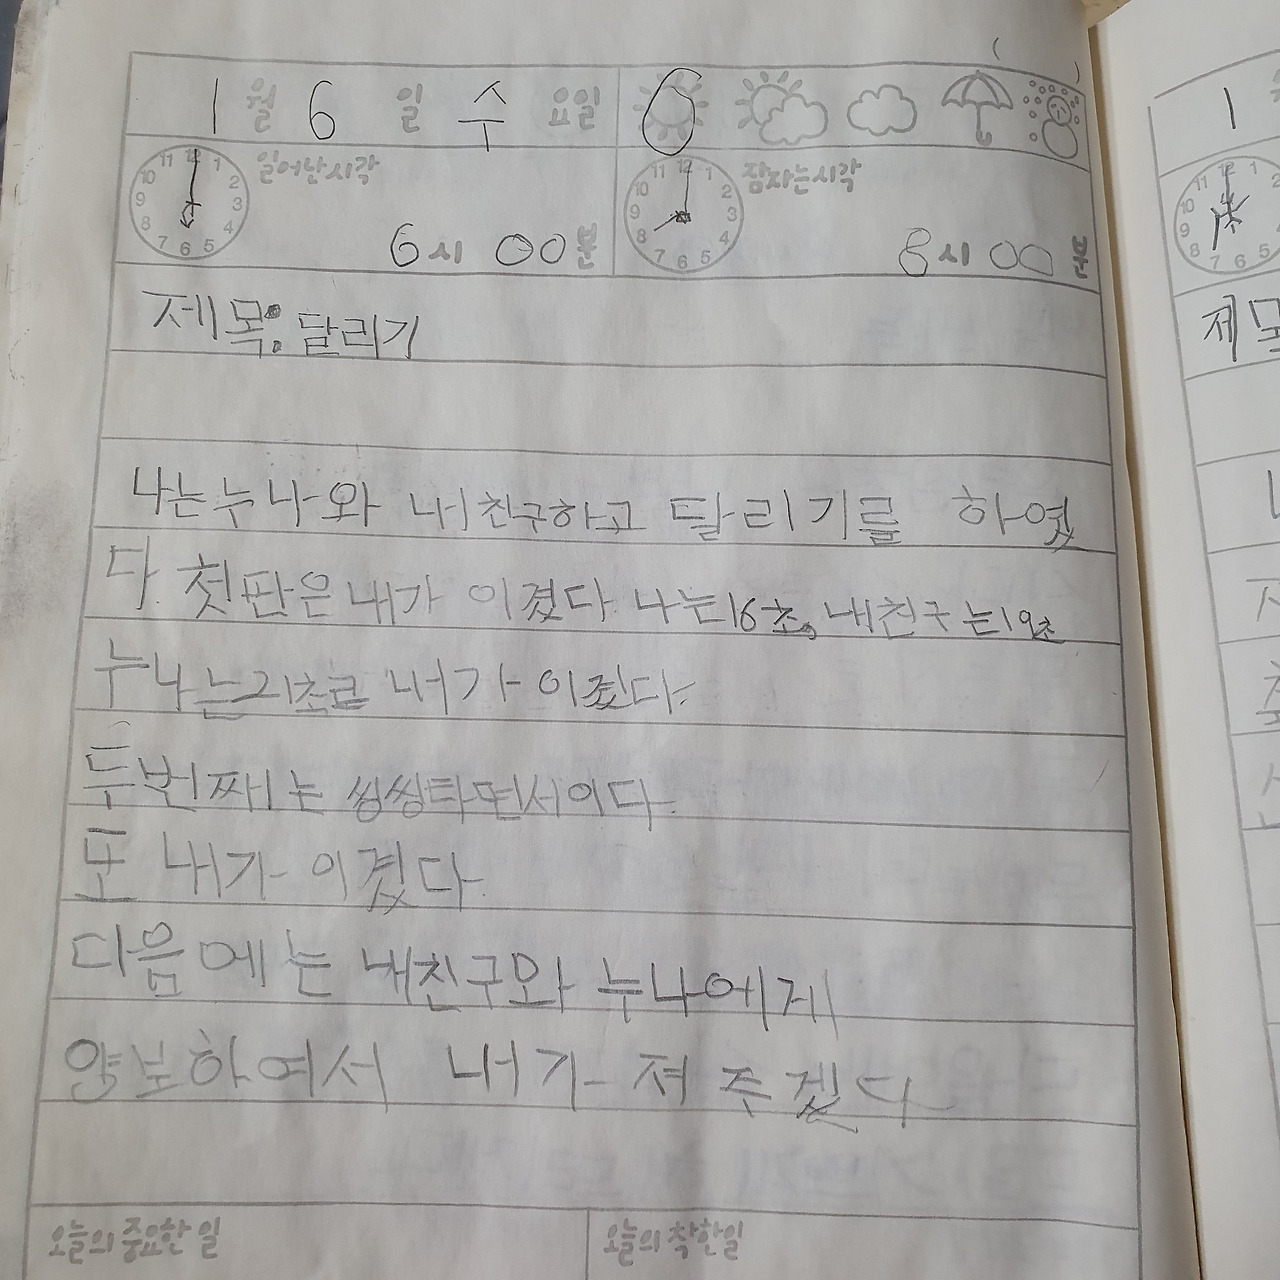 1 월 6 일 수 요일
일어난시각
6 시 00 분
잠자는시각
8 시 00 분
제목: 달리기
나는누나와 내친구하고 달리기를 하였
다. 첫판은내가 이겼다. 나는16초, 내친구는19초
누나는21초로 내가 이겼다.
두번째는 씽씽타면서이다.
또 내가 이겼다.
다음에는 내친구와 누나에게
양보하여서 내가 져 주겠다
오늘의 중요한 일
오늘의 착한일
1
제목